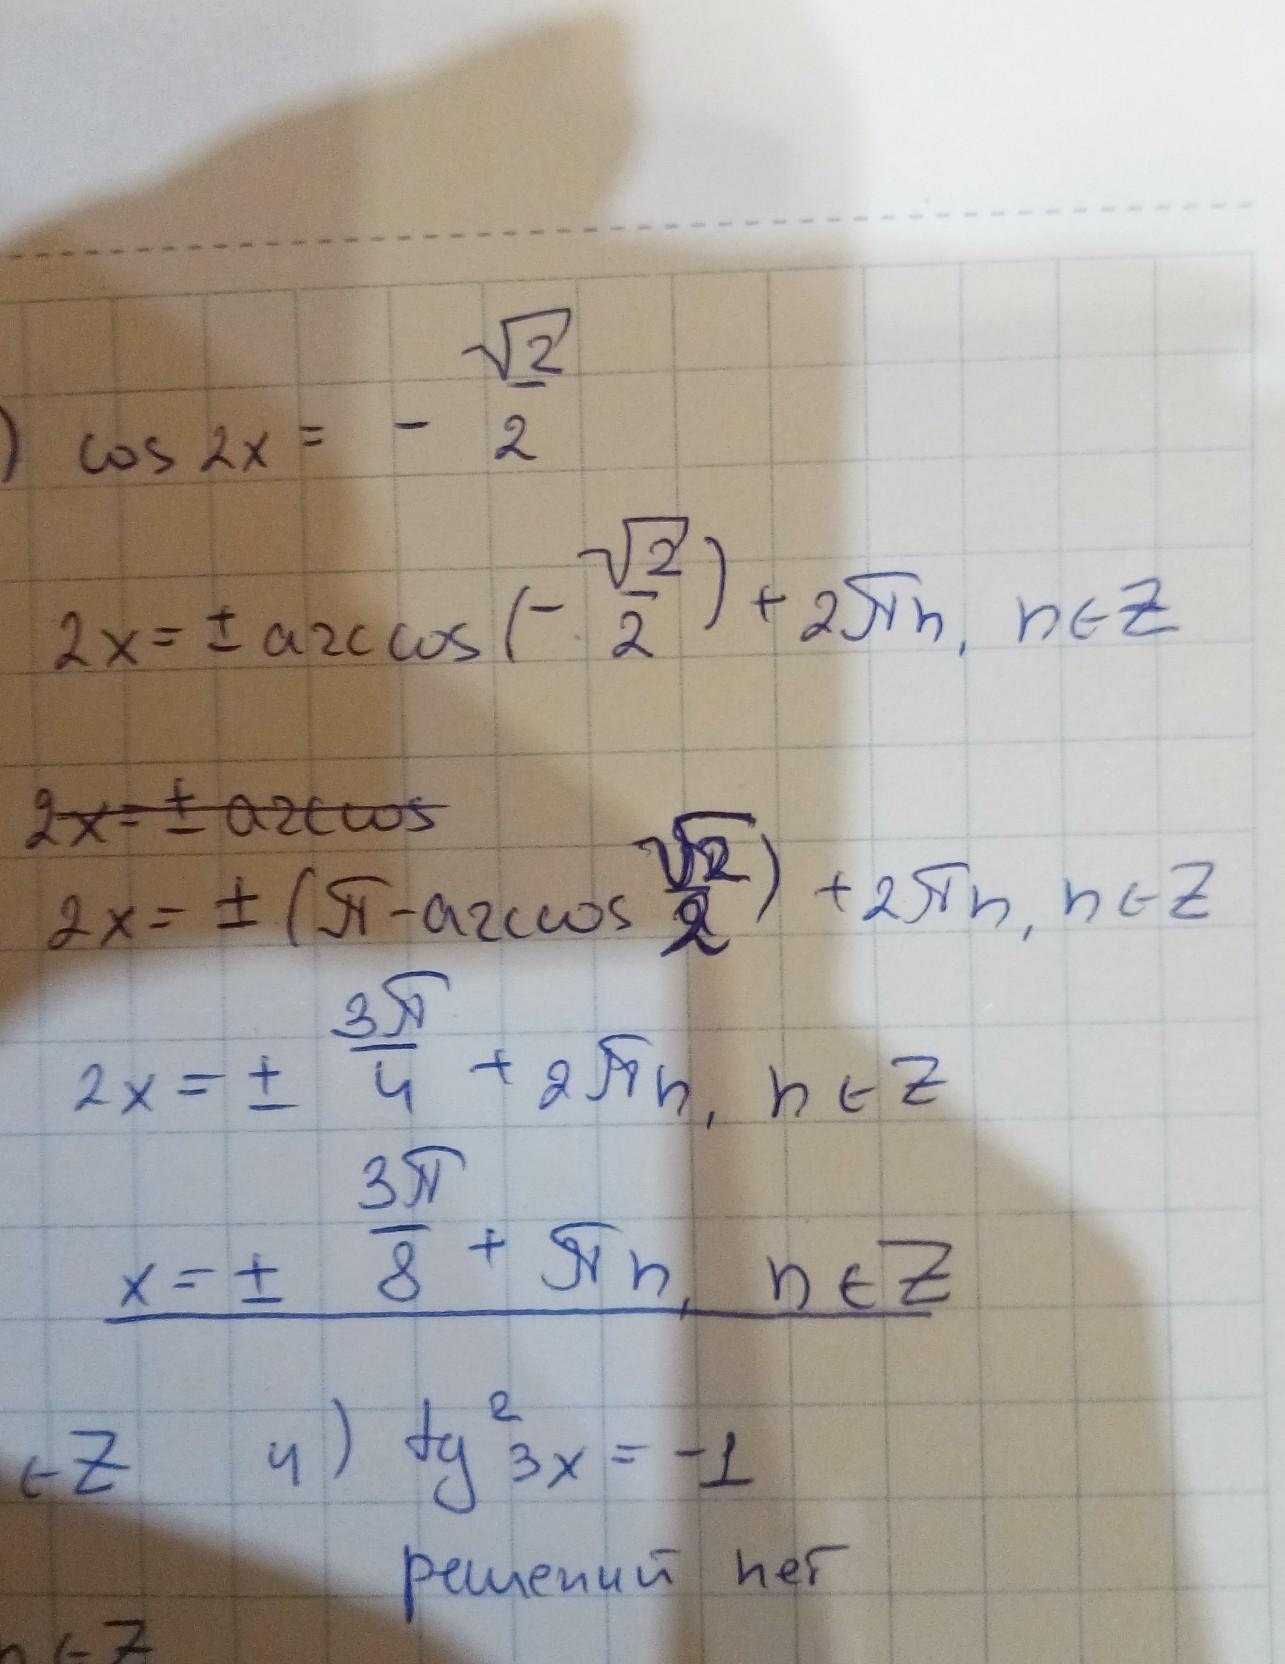 ) cos 2x = - √2/2
2x = ± arccos (- √2/2) + 2πn, n ∈ Z
2x = ± arccos
2x = ± (π - arccos √2/2) + 2πn, n ∈ Z
2x = ± 3π/4 + 2πn, n ∈ Z
x = ± 3π/8 + πn, n ∈ Z
∈ Z 4) tg² 3x = -1
решений нет
n ∈ Z